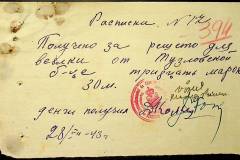 Расписка. N 172
394
Получено за решето для
веялки от Тузловской
б-це тридцать марок
30 м.
денги получил
28/IV-43 г.